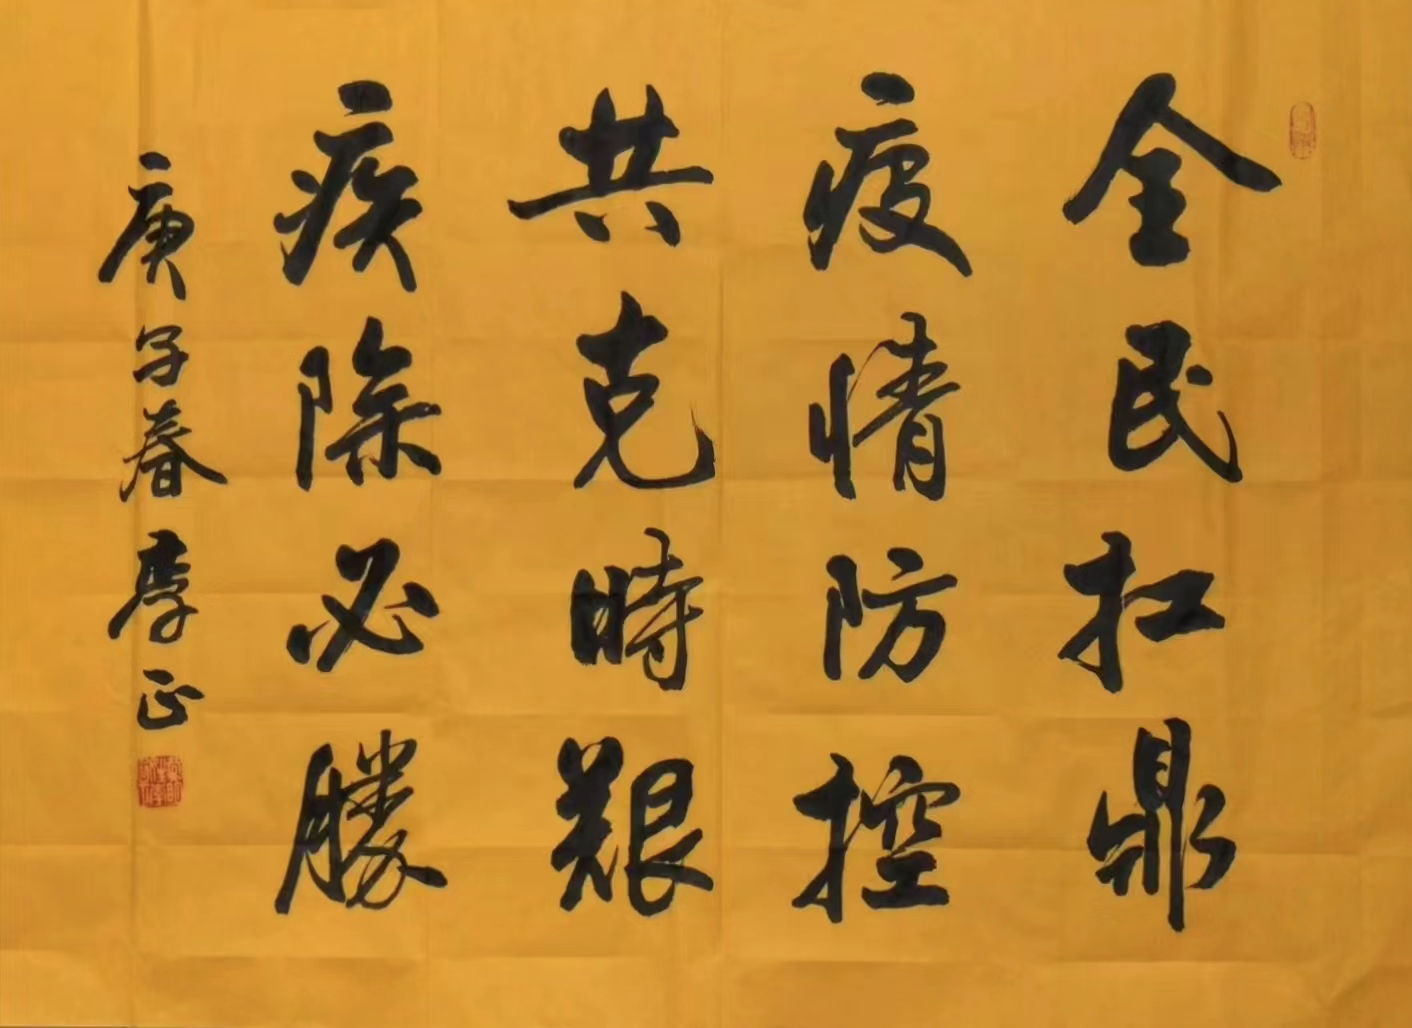 全民扛鼎
疫情防控
共克時艱
疾除必勝
庚子春李正